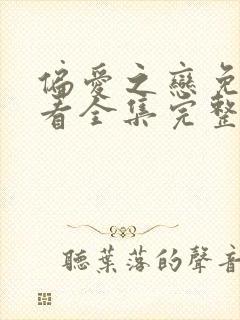 偏愛之戀免
看全集完整
聽葉落的聲音